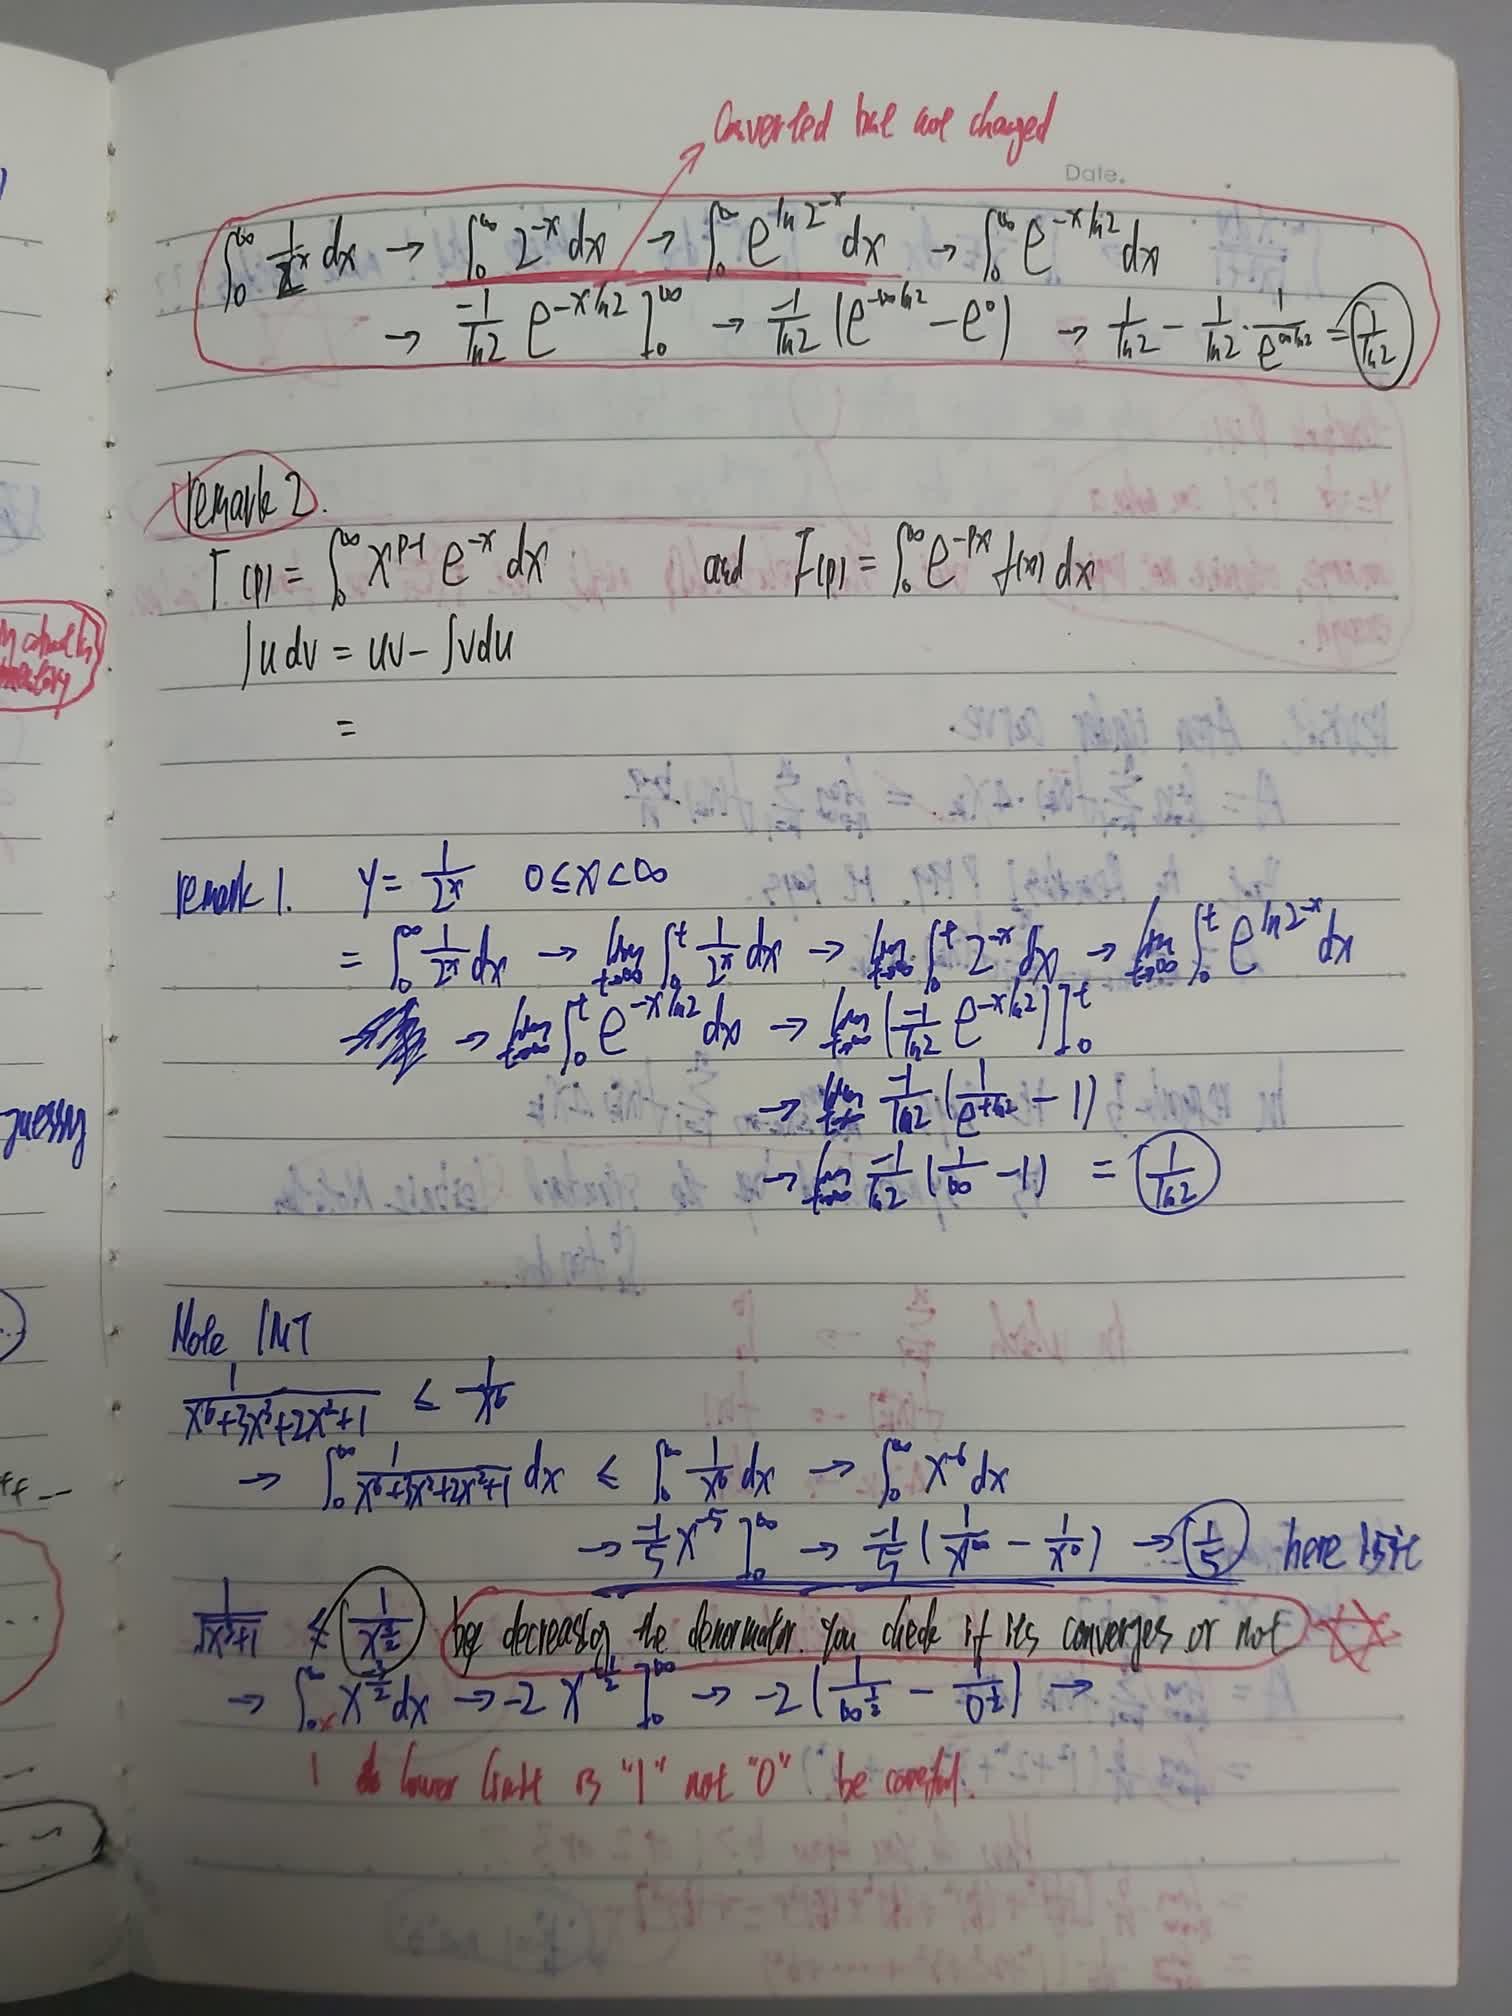 Converted but not changed
Date.
∫₀^∞ 1/2^x dx → ∫₀^∞ 2^-x dx → ∫₀^∞ e^(ln 2^-x) dx → ∫₀^∞ e^(-x ln2) dx
→ -1/ln2 e^(-x ln2) ]₀^∞ → -1/ln2 (e^(-∞ ln2) - e^0) → 1/ln2 - 1/ln2 · 1/e^(∞ ln2) = 1/ln2
remark 2.
Γ(p) = ∫₀^∞ x^(p-1) e^-x dx and F(p) = ∫₀^∞ e^(-px) f(x) dx
∫u dv = uv - ∫v du
=
remark 1. y = 1/2^x 0 ≤ x < ∞
= ∫₀^∞ 1/2^x dx → lim t→∞ ∫₀^t 1/2^x dx → lim t→∞ ∫₀^t 2^-x dx → lim t→∞ ∫₀^t e^(ln 2^-x) dx
→ lim t→∞ ∫₀^t e^(-x ln2) dx → lim t→∞ (-1/ln2 e^(-x ln2)) ]₀^t
→ lim t→∞ -1/ln2 · (1/e^(t ln2) - 1)
→ lim t→∞ -1/ln2 (1/∞ - 1) = 1/ln2
Note
1/(x^6+3x^3+2x^2+1) ≤ 1/x^6
→ ∫₀^∞ 1/(x^6+3x^2+2x^2+1) dx ≤ ∫₀^∞ 1/x^6 dx → ∫₀^∞ x^-6 dx
→ -1/5 x^-5 ]₀^∞ → -1/5 (1/x^∞ - 1/x^0) → 1/5 here
1/√(x^3+1) ≤ 1/x^(3/2) by decreasing the denormator. You check if its converges or not
→ ∫₀^∞ x^(-3/2) dx → -2 x^(-1/2) ]₀^∞ → -2 (1/∞^(1/2) - 1/0^(1/2)) →
1 lower limit is "1" not "0" be careful.
guessy